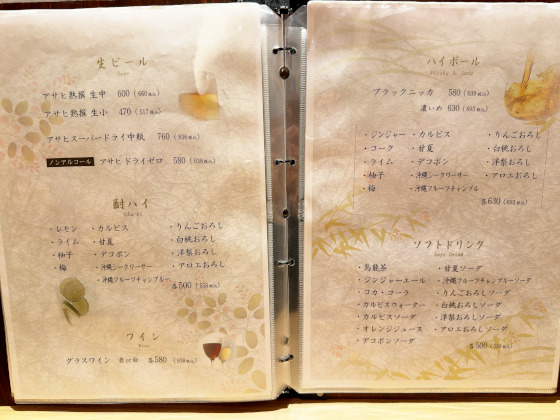 生ビール
Beer
アサヒ熟撰 生中 600 (660税込)
アサヒ熟撰 生小 470 (517税込)
アサヒスーパードライ中瓶 760 (836税込)
ノンアルコール アサヒ ドライゼロ 580 (638税込)
酎ハイ
・レモン ・カルピス ・りんごおろし
・ライム ・甘夏 ・白桃おろし
・柚子 ・デコポン ・洋梨おろし
・梅 ・沖縄シークワーサー ・アロエおろし
・沖縄フルーツチャンプルー
各500 (550税込)
ワイン
Wine
グラスワイン 赤or白 各580 (638税込)
ハイボール
ブラックニッカ 580 (639税込)
濃いめ 630 (693税込)
・ジンジャー ・カルピス ・りんごおろし
・コーク ・甘夏 ・白桃おろし
・ライム ・デコポン ・洋梨おろし
・柚子 ・沖縄シークワーサー ・アロエおろし
・梅 ・沖縄フルーツチャンプル
各630 (693税込)
ソフトドリンク
Soft Drink
・烏龍茶 ・甘夏ソーダ
・ジンジャーエール ・沖縄フルーツチャンプルーソーダ
・コカ・コーラ ・りんごおろしソーダ
・カルピスウォーター ・白桃おろしソーダ
・カルピスソーダ ・洋梨おろしソーダ
・オレンジジュース ・アロエおろしソーダ
・デコポンソーダ
各500 (550税込)